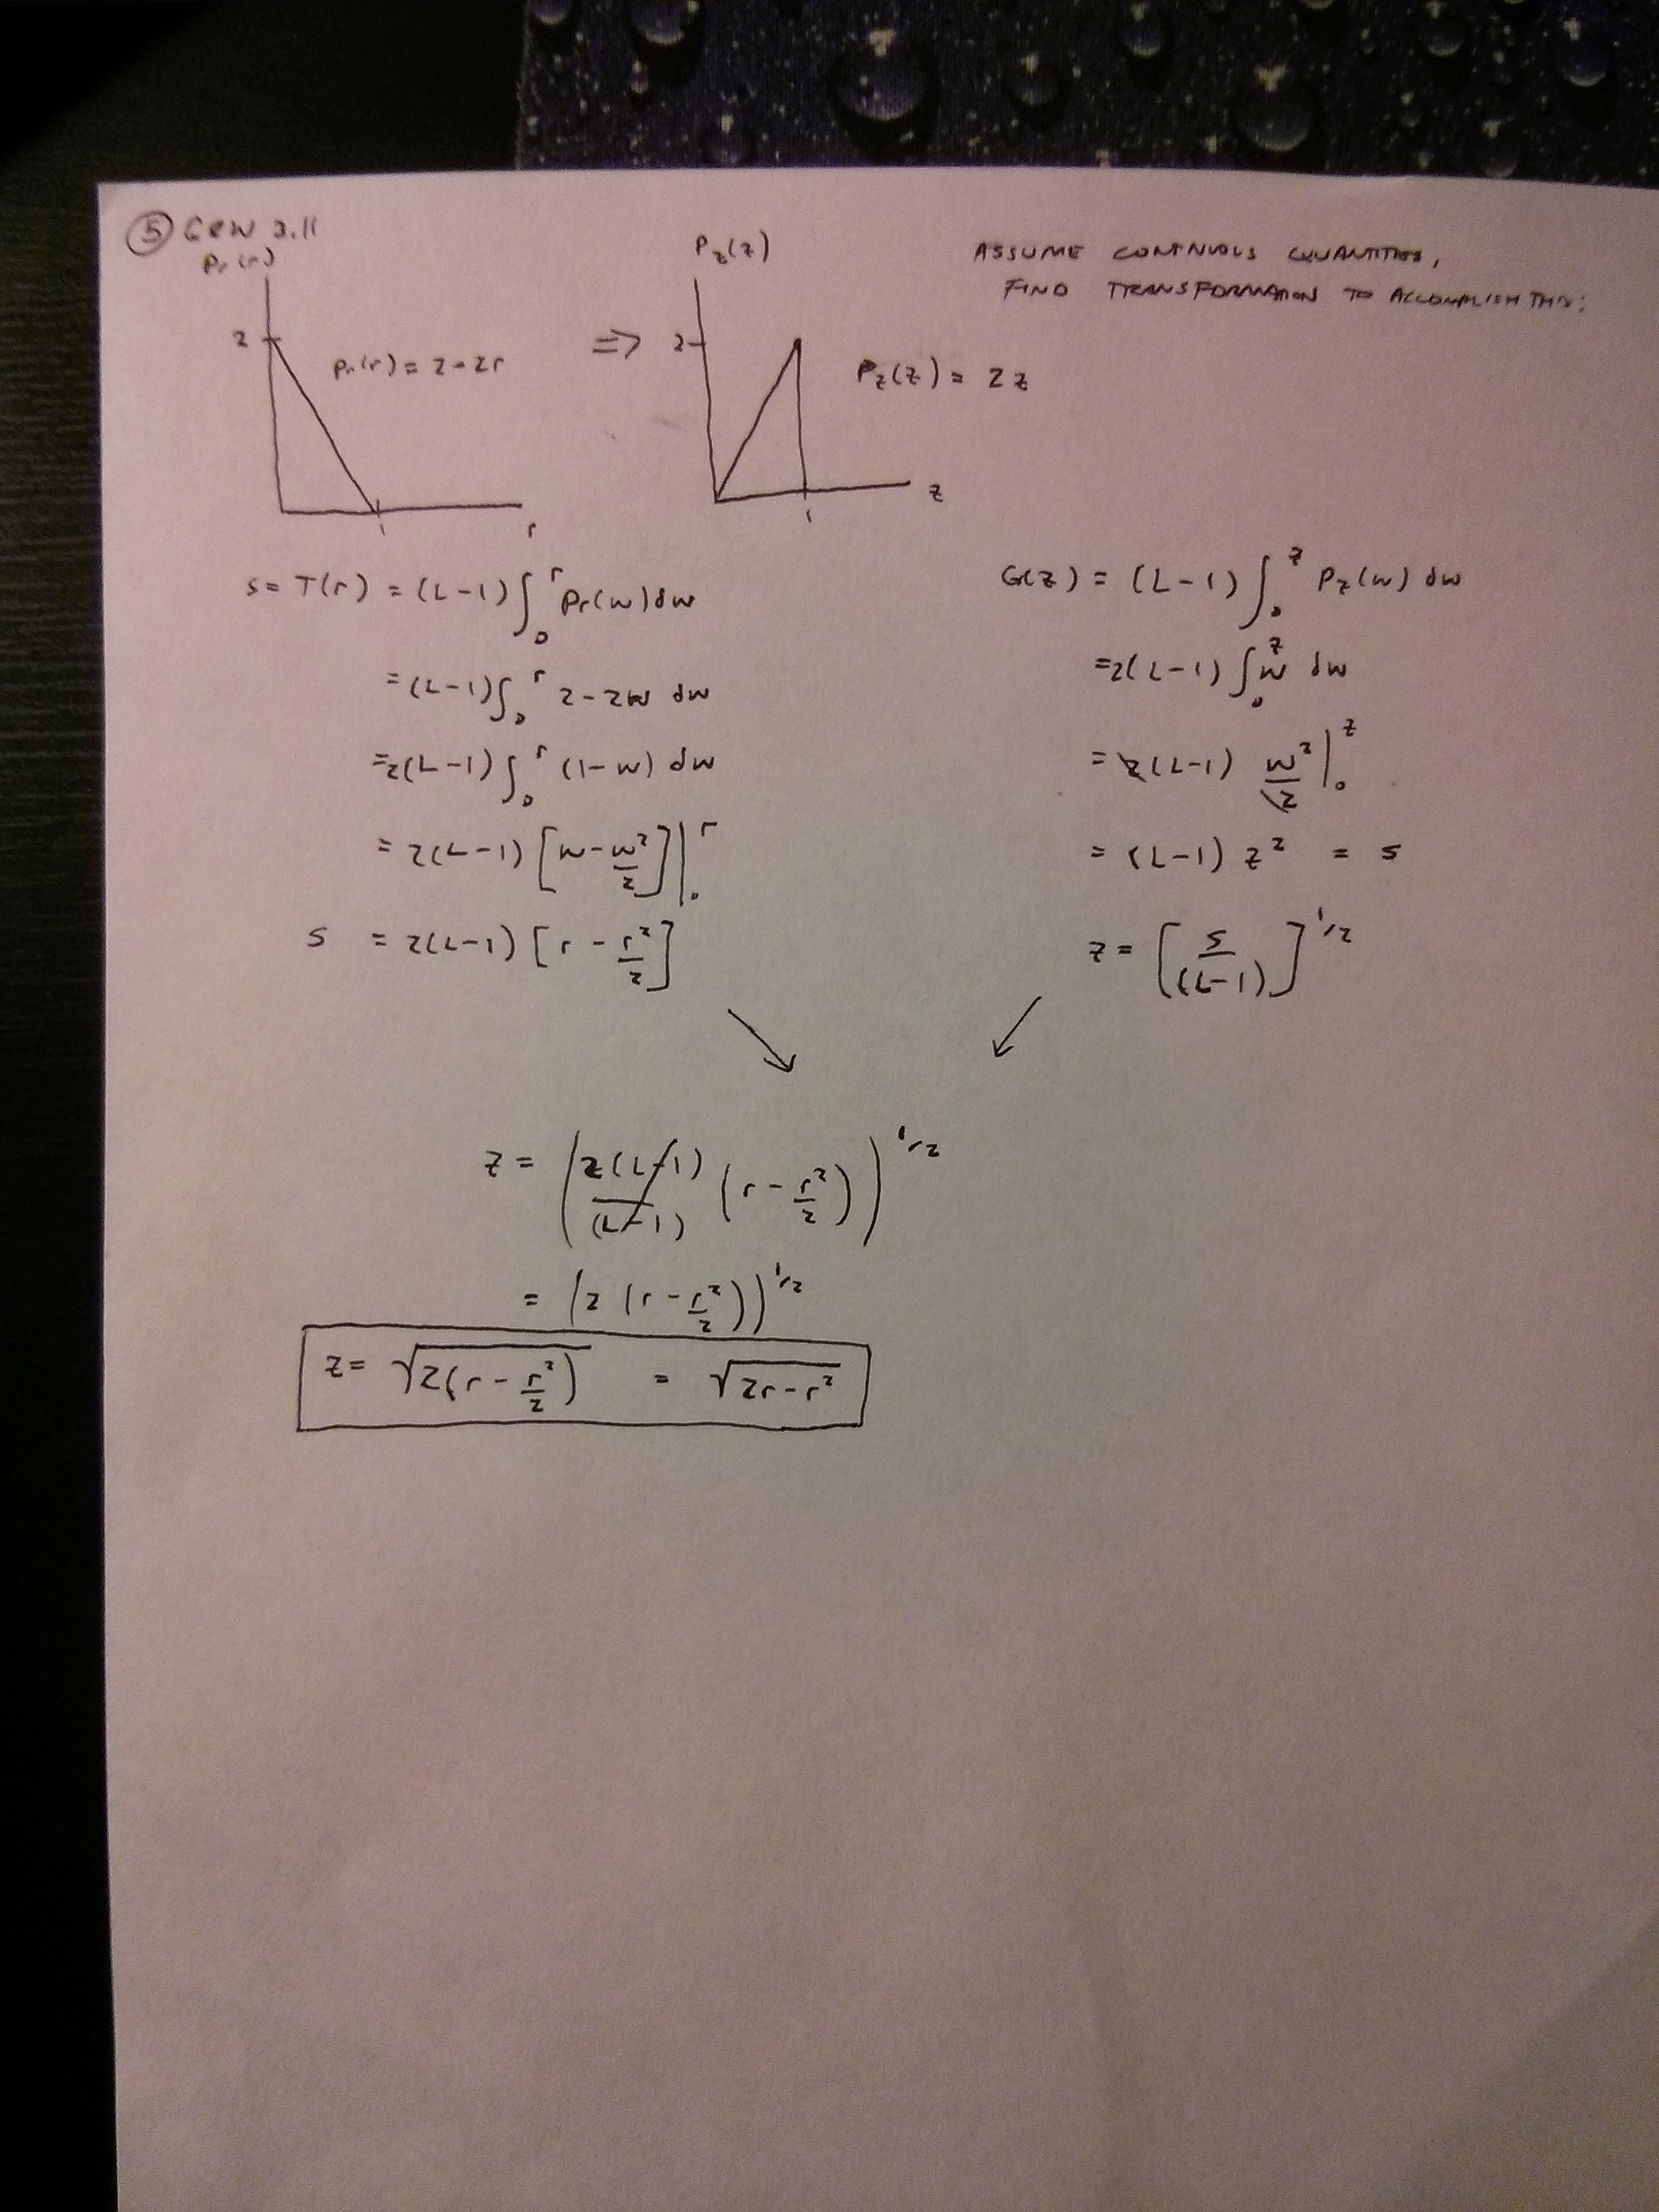 ⑤ G&W 3.11
Pr(r)
2
Pr(r) = 2-2r
1
r
=>
Pz(z)
2
Pz(z) = 2z
1
z
ASSUME CONTINUOUS QUANTITIES,
FIND TRANSFORMATION TO ACCOMPLISH THIS:
s = T(r) = (L-1) ∫₀^r Pr(w) dw
= (L-1) ∫₀^r 2-2w dw
= 2(L-1) ∫₀^r (1-w) dw
= 2(L-1) [w - w²/2] |₀^r
s = 2(L-1) [r - r²/2]
G(z) = (L-1) ∫₀^z Pz(w) dw
= 2(L-1) ∫₀^z w dw
= 2(L-1) w²/2 |₀^z
= (L-1) z² = s
z = [s/(L-1)]^1/2
z = (2(L-1)/(L-1) (r - r²/2))^1/2
= (2 (r - r²/2))^1/2
z = √2(r - r²/2) = √2r-r²